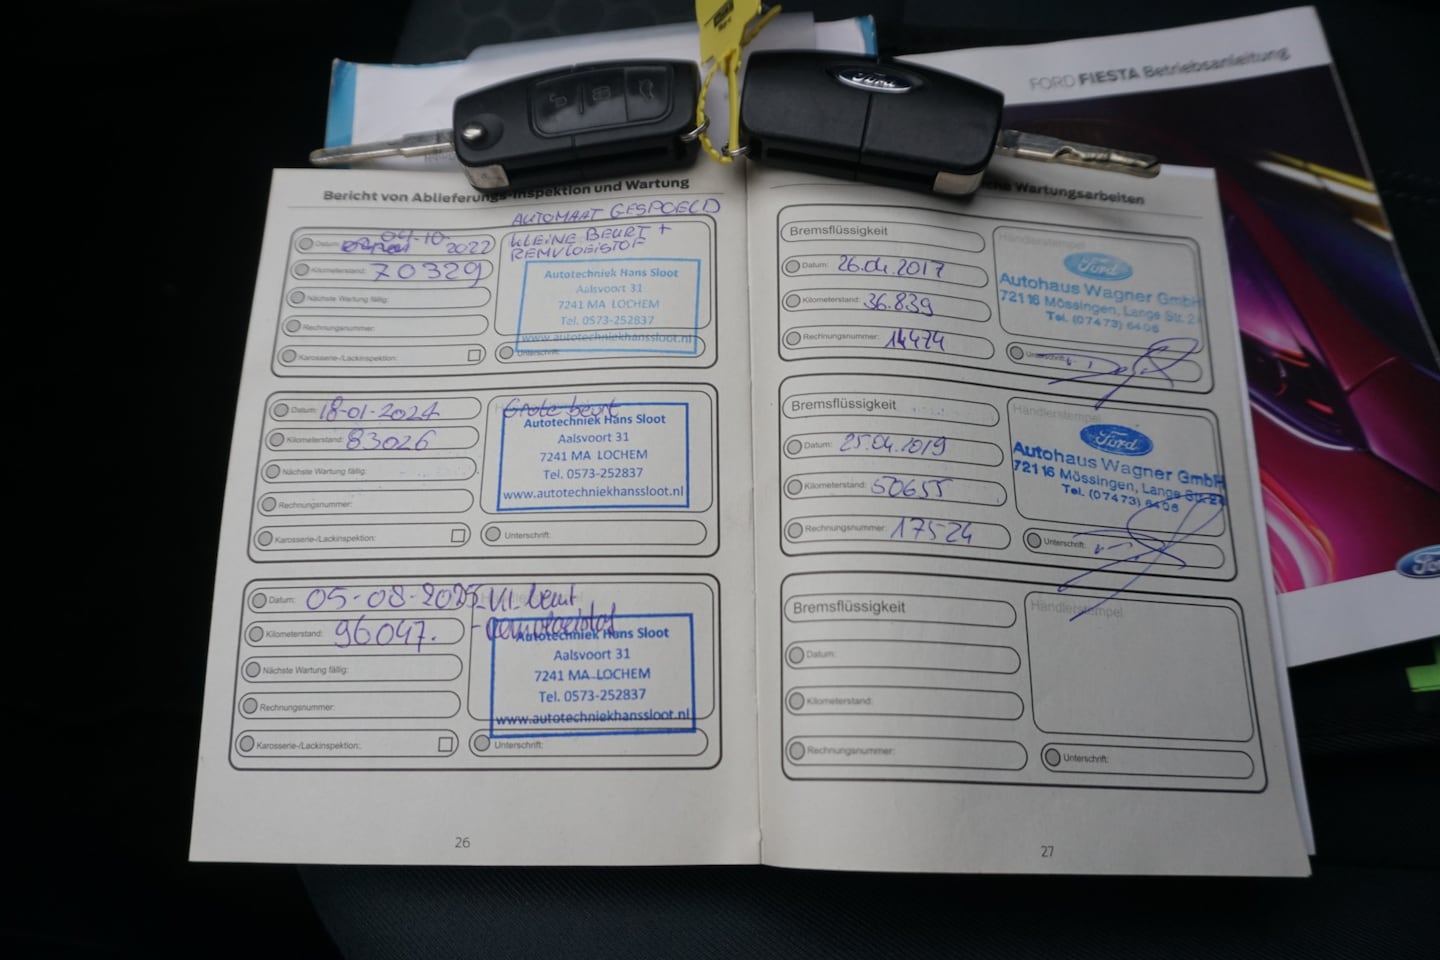 FORD FIESTA Betriebsanleitung
Ford
Bericht von Ablieferungs-Inspektion und Wartung
AUTOMAAT GESPOELD
KLEINE BEURT +
REMVLOEISTOF
Datum: 04-10-2022
Kilometerstand: 70329
Nächste Wartung fällig:
Rechnungsnummer:
Karosserie-/Lackinspektion:
Autotechniek Hans Sloot
Aalsvoort 31
7241 MA LOCHEM
Tel. 0573-252837
www.autotechniekhanssloot.nl
Unterschrift:
Datum: 18-01-2024
Kilometerstand: 83026
Nächste Wartung fällig:
Rechnungsnummer:
Karosserie-/Lackinspektion:
Grote beurt
Autotechniek Hans Sloot
Aalsvoort 31
7241 MA LOCHEM
Tel. 0573-252837
www.autotechniekhanssloot.nl
Unterschrift:
Datum: 05-08-2025
Kilometerstand: 96047.
Nächste Wartung fällig:
Rechnungsnummer:
Karosserie-/Lackinspektion:
- kl. beurt
- remvloeistof
Autotechniek Hans Sloot
Aalsvoort 31
7241 MA LOCHEM
Tel. 0573-252837
www.autotechniekhanssloot.nl
Unterschrift:
26
Wartungsarbeiten
Bremsflüssigkeit
Datum: 26.04.2017
Kilometerstand: 36.839
Rechnungsnummer: 14474
Händlerstempel
Ford
Autohaus Wagner GmbH
72116 Mössingen, Lange Str. 2
Tel. (07473) 6406
Unterschrift:
Bremsflüssigkeit
Datum: 25.04.2019
Kilometerstand: 50655
Rechnungsnummer: 17524
Händlerstempel
Ford
Autohaus Wagner GmbH
72116 Mössingen, Lange Str. 2
Tel. (07473) 6406
Unterschrift:
Bremsflüssigkeit
Datum:
Kilometerstand:
Rechnungsnummer:
Händlerstempel
Unterschrift:
27